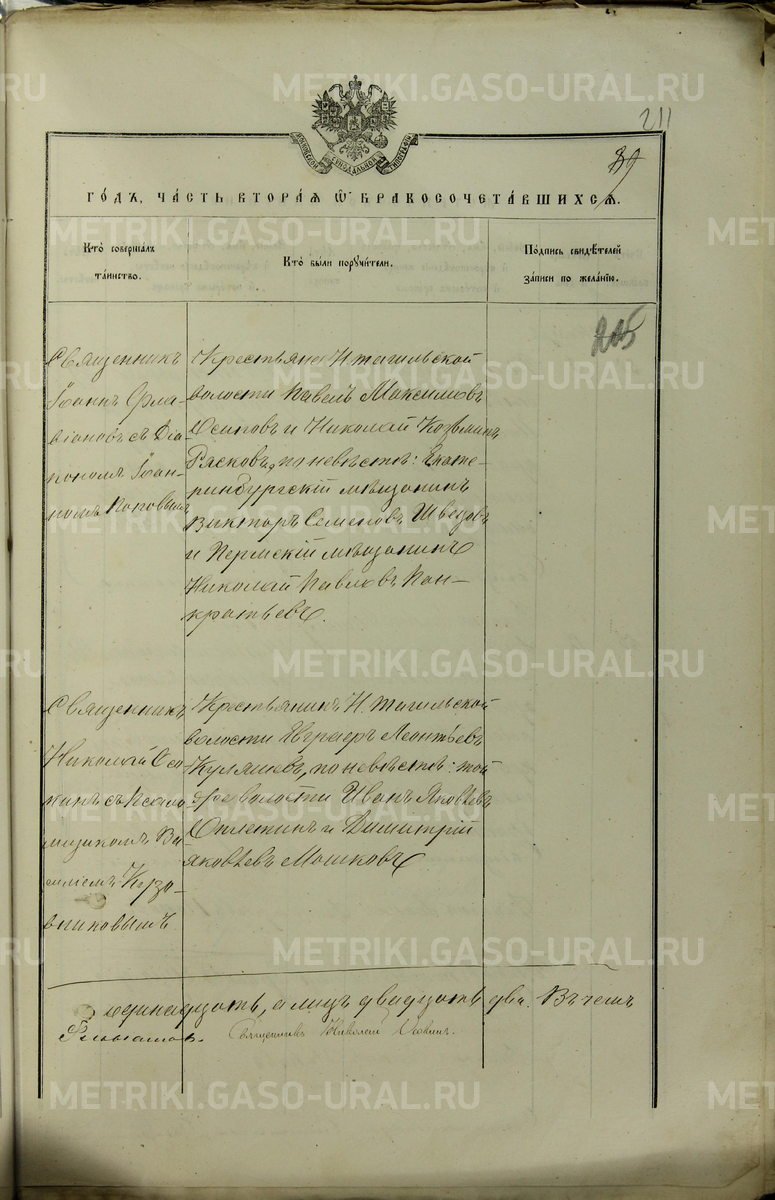 211
39
МОСКОВСКОЙ СѴНОДАЛЬНОЙ ТИПОГРАФІИ
ГО́ДЪ, ЧА́СТЬ ВТОРА́Я Ѿ БРАКОСОЧЕТА́ВШИХСЯ.
Кто̀ совершалъ
та́инство.
Кто̀ бы́ли порꙋчи́тели.
По́дпись свидѣ́телей
за́писи по жела́нїю.
205
Священникъ
Іоаннъ Фла-
віановъ съ Діа-
кономъ Іоан-
номъ Поповымъ
Крестьяне Н. тагильской
волости Павелъ Максимовъ
Осиповъ и Николай Козьминъ
Рясковъ, по невѣстѣ: Екате-
ринбургскій мѣщанинъ
Викторъ Семеновъ Шведовъ
и Пермскій мѣщанинъ
Николай Павловъ Пан-
кратьевъ.
Священникъ
Николай Ося
кинъ съ Псало
мщикомъ Ва-
силіемъ Кузо-
вниковымъ
Крестьянинъ Н. тагильской
волости Леонтьевъ
по невѣстѣ: той
же волости Иванъ Яковлевъ
и Димитрій
Яковлевъ Мошковъ
одинадцать, а лицъ двадцать два. Въ чемъ
Священникъ Николай
METRIKI.GASO-URAL.RU